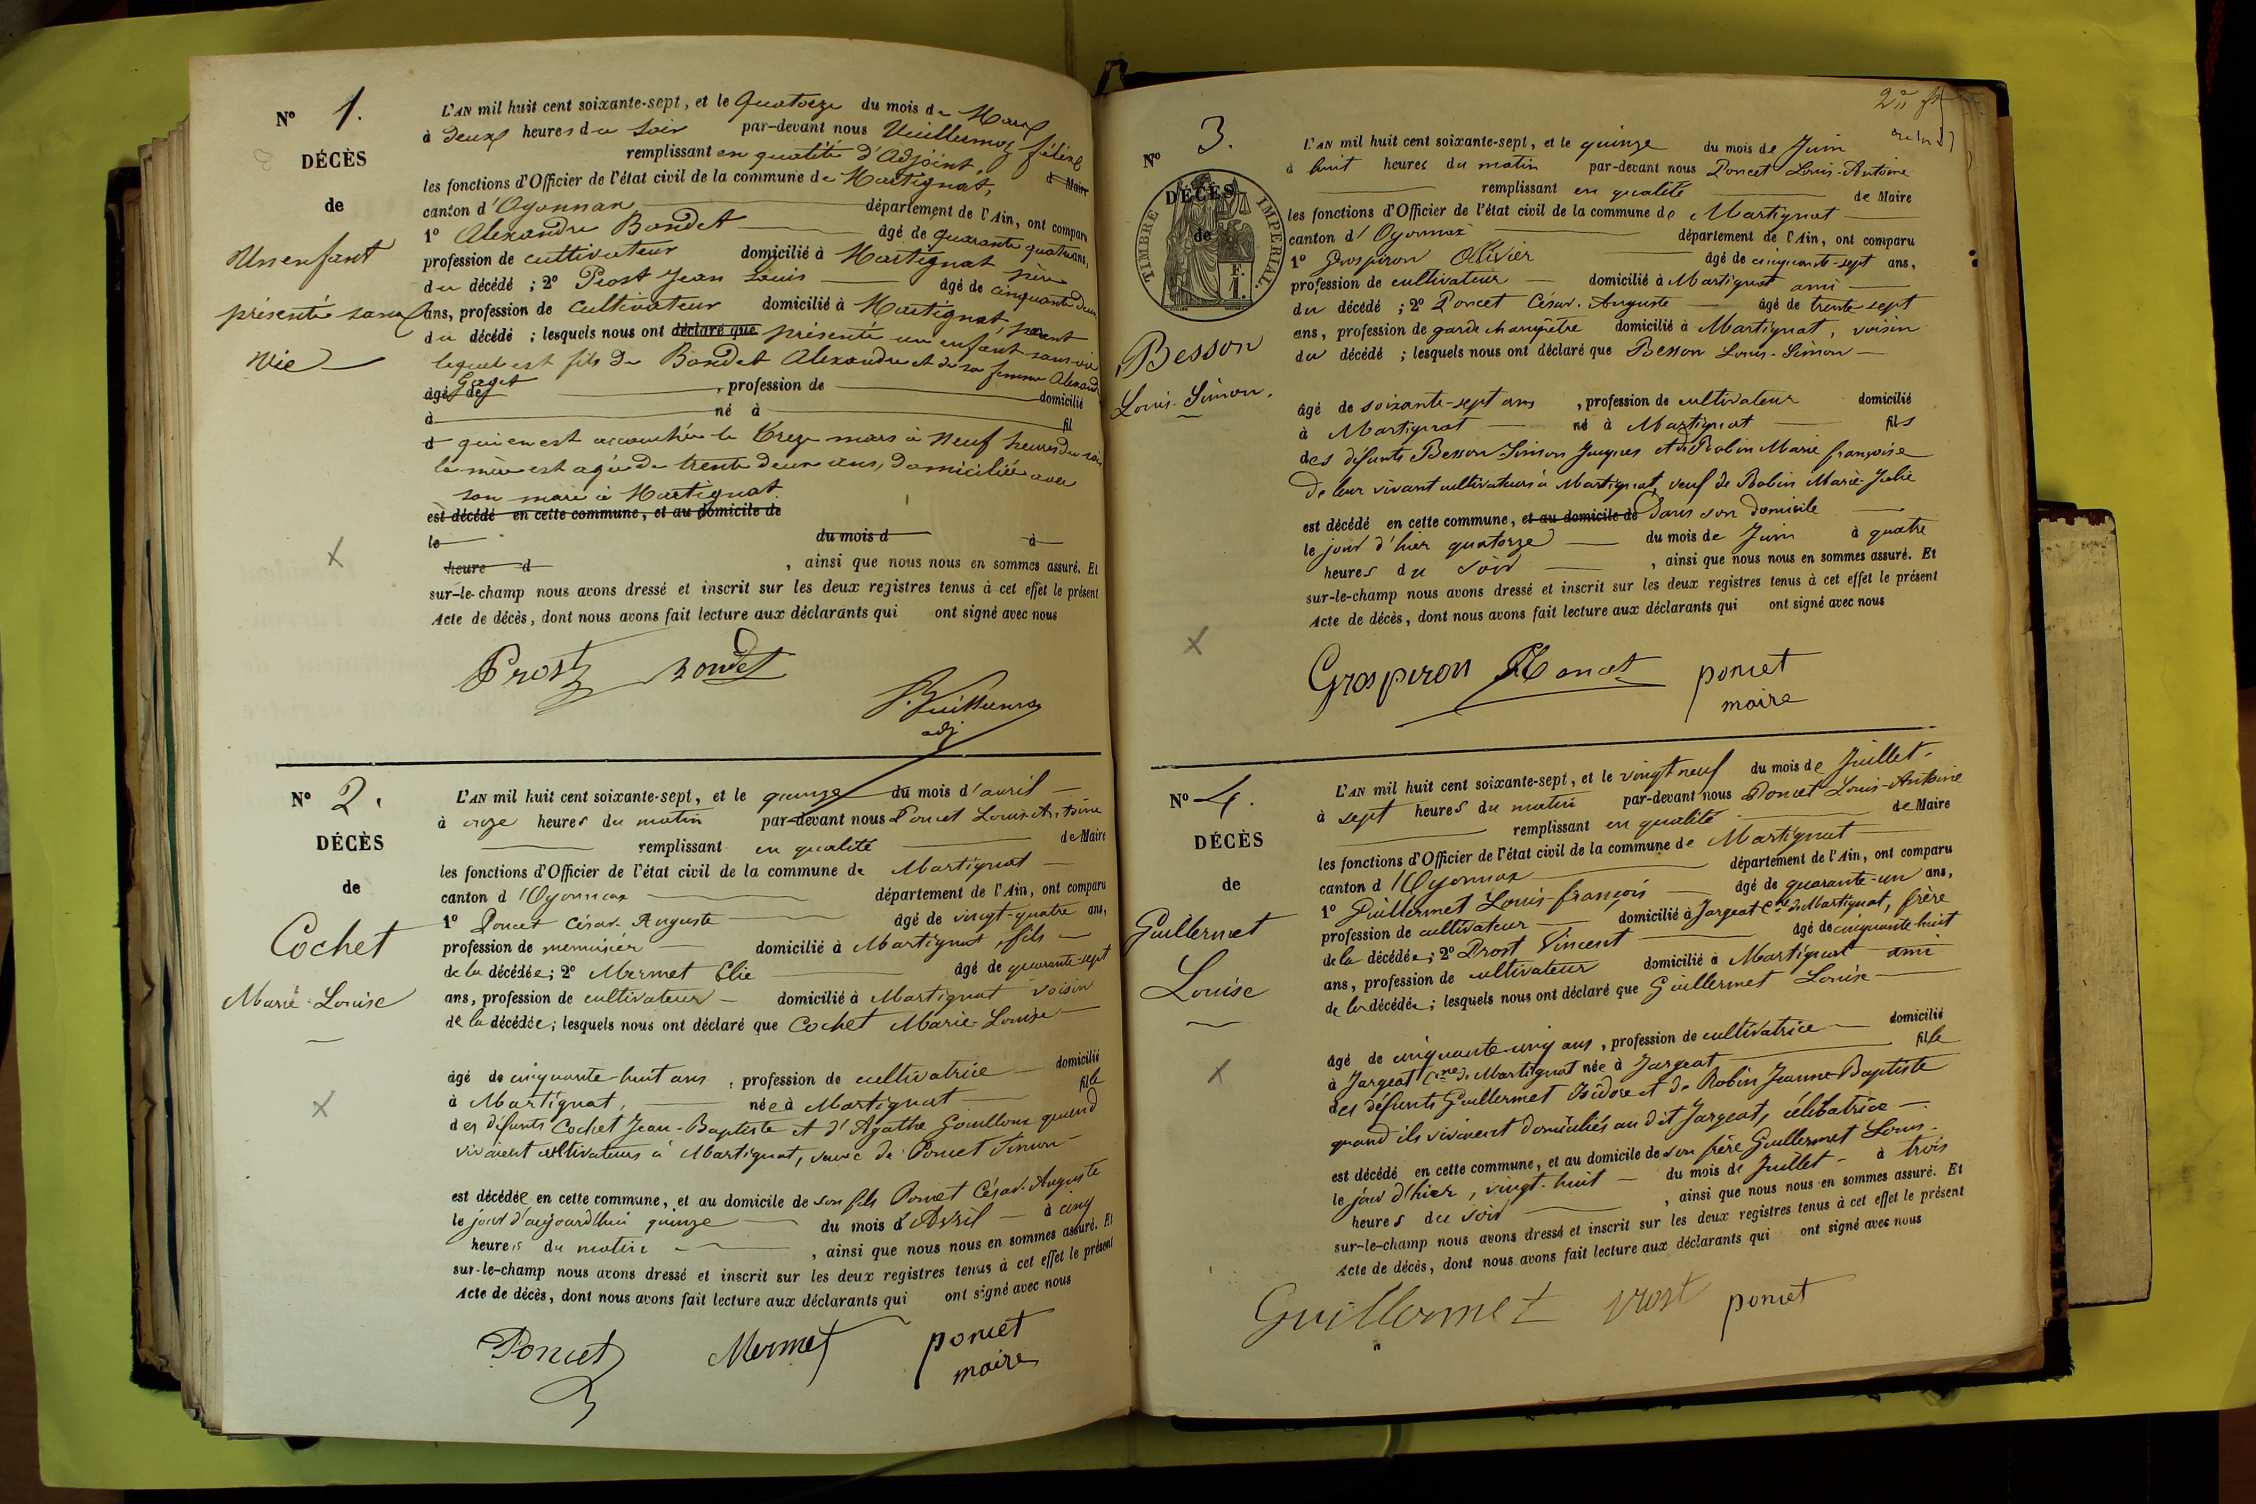 N° 1.
DÉCÈS
de
Un enfant
présenté sans
vie
L'AN mil huit cent soixante-sept, et le Quatorze du mois de Mars
à deux heures du soir par-devant nous Vuillermoz félix
remplissant en qualité d'Adjoint d Maire
les fonctions d'Officier de l'état civil de la commune de Martignat,
canton d'Oyonnax département de l'Ain, ont comparu
1° Alexandre Bondet âgé de quarante quatre ans,
profession de cultivateur domicilié à Martignat père
du décédé ; 2° Prost Jean Louis âgé de cinquante deux
ans, profession de cultivateur domicilié à Martignat, parent
du décédé ; lesquels nous ont déclaré que présenté un enfant sans vie
lequel est fils de Bondet Alexandre et de sa femme
âgé de , profession de domicilié
à né à fil
d qui en est accouchée le treize mars à neuf heures du soir
la mère est agée de trente deux ans, domiciliée avec
son mari à Martignat
est décédé en cette commune, et au domicile de
le du mois d à
heure d , ainsi que nous nous en sommes assuré. Et
sur-le-champ nous avons dressé et inscrit sur les deux registres tenus à cet effet le présent
Acte de décès, dont nous avons fait lecture aux déclarants qui ont signé avec nous
Prost Bondet
F. Vuillermoz
adj
N° 2.
DÉCÈS
de
Cochet
Marie-Louise
L'AN mil huit cent soixante-sept, et le quinze du mois d'avril
à onze heures du matin par-devant nous Poncet Louis-Antoine
remplissant en qualité de Maire
les fonctions d'Officier de l'état civil de la commune de Martignat
canton d'Oyonnax département de l'Ain, ont comparu
1° Poncet César-Auguste âgé de vingt-quatre ans,
profession de menuisier domicilié à Martignat, fils
de la décédée ; 2° Mermet Elie âgé de quarante-sept
ans, profession de cultivateur domicilié à Martignat voisin
de la décédée ; lesquels nous ont déclaré que Cochet Marie-Louise
âgé de cinquante-huit ans , profession de cultivatrice domicilié
à Martignat, née à Martignat fille
des défunts Cochet Jean-Baptiste et d'Agathe Gouilloux quand
vivaient cultivateurs à Martignat, veuve de Poncet Simon
est décédée en cette commune, et au domicile de son fils Poncet César-Auguste
le jour d'aujourd'hui quinze du mois d'Avril à cinq
heures du matin , ainsi que nous nous en sommes assuré. Et
sur-le-champ nous avons dressé et inscrit sur les deux registres tenus à cet effet le présent
Acte de décès, dont nous avons fait lecture aux déclarants qui ont signé avec nous
Poncet Mermet poncet
maire
N° 3.
DÉCÈS
de
TIMBRE IMPERIAL
F. 1.
Besson
Louis-Simon.
L'AN mil huit cent soixante-sept, et le quinze du mois de Juin
à huit heures du matin par-devant nous Poncet Louis-Antoine
remplissant en qualité de Maire
les fonctions d'Officier de l'état civil de la commune de Martignat
canton d'Oyonnax département de l'Ain, ont comparu
1° Grospiron Olivier âgé de cinquante-sept ans,
profession de cultivateur domicilié à Martignat ami
du décédé ; 2° Poncet César-Auguste âgé de trente-sept
ans, profession de garde champêtre domicilié à Martignat, voisin
du décédé ; lesquels nous ont déclaré que Besson Louis-Simon
âgé de soixante-sept ans , profession de cultivateur domicilié
à Martignat né à Martignat fils
des défunts Besson Simon Jacques et de Robin Marie françoise
de leur vivant cultivateurs à Martignat, veuf de Robin Marie-Julie
est décédé en cette commune, et au domicile de dans son domicile
le jour d'hier quatorze du mois de Juin à quatre
heures du soir , ainsi que nous nous en sommes assuré. Et
sur-le-champ nous avons dressé et inscrit sur les deux registres tenus à cet effet le présent
Acte de décès, dont nous avons fait lecture aux déclarants qui ont signé avec nous
Grospiron Poncet poncet
maire
N° 4.
DÉCÈS
de
Guillermet
Louise
L'AN mil huit cent soixante-sept, et le vingt neuf du mois de Juillet
à sept heures du matin par-devant nous Poncet Louis-Antoine
remplissant en qualité de Maire
les fonctions d'Officier de l'état civil de la commune de Martignat
canton d'Oyonnax département de l'Ain, ont comparu
1° Guillermet Louis-françois âgé de quarante-un ans,
profession de cultivateur domicilié à Jargeat Cne de Martignat, frère
de la décédée ; 2° Prost Vincent âgé de cinquante-huit
ans, profession de cultivateur domicilié à Martignat ami
de la décédée ; lesquels nous ont déclaré que Guillermet Louise
âgé de cinquante-cinq ans , profession de cultivatrice domicilié
à Jargeat Cne de Martignat née à Jargeat fille
des défunts Guillermet Isidore et de Robin Jeanne-Baptiste
quand ils vivaient domiciliés au dit Jargeat, célibatrice
est décédé en cette commune, et au domicile de son frère Guillermet Louis
le jour d'hier, vingt-huit du mois de Juillet à trois
heures du soir , ainsi que nous nous en sommes assuré. Et
sur-le-champ nous avons dressé et inscrit sur les deux registres tenus à cet effet le présent
Acte de décès, dont nous avons fait lecture aux déclarants qui ont signé avec nous
Guillermet prost poncet